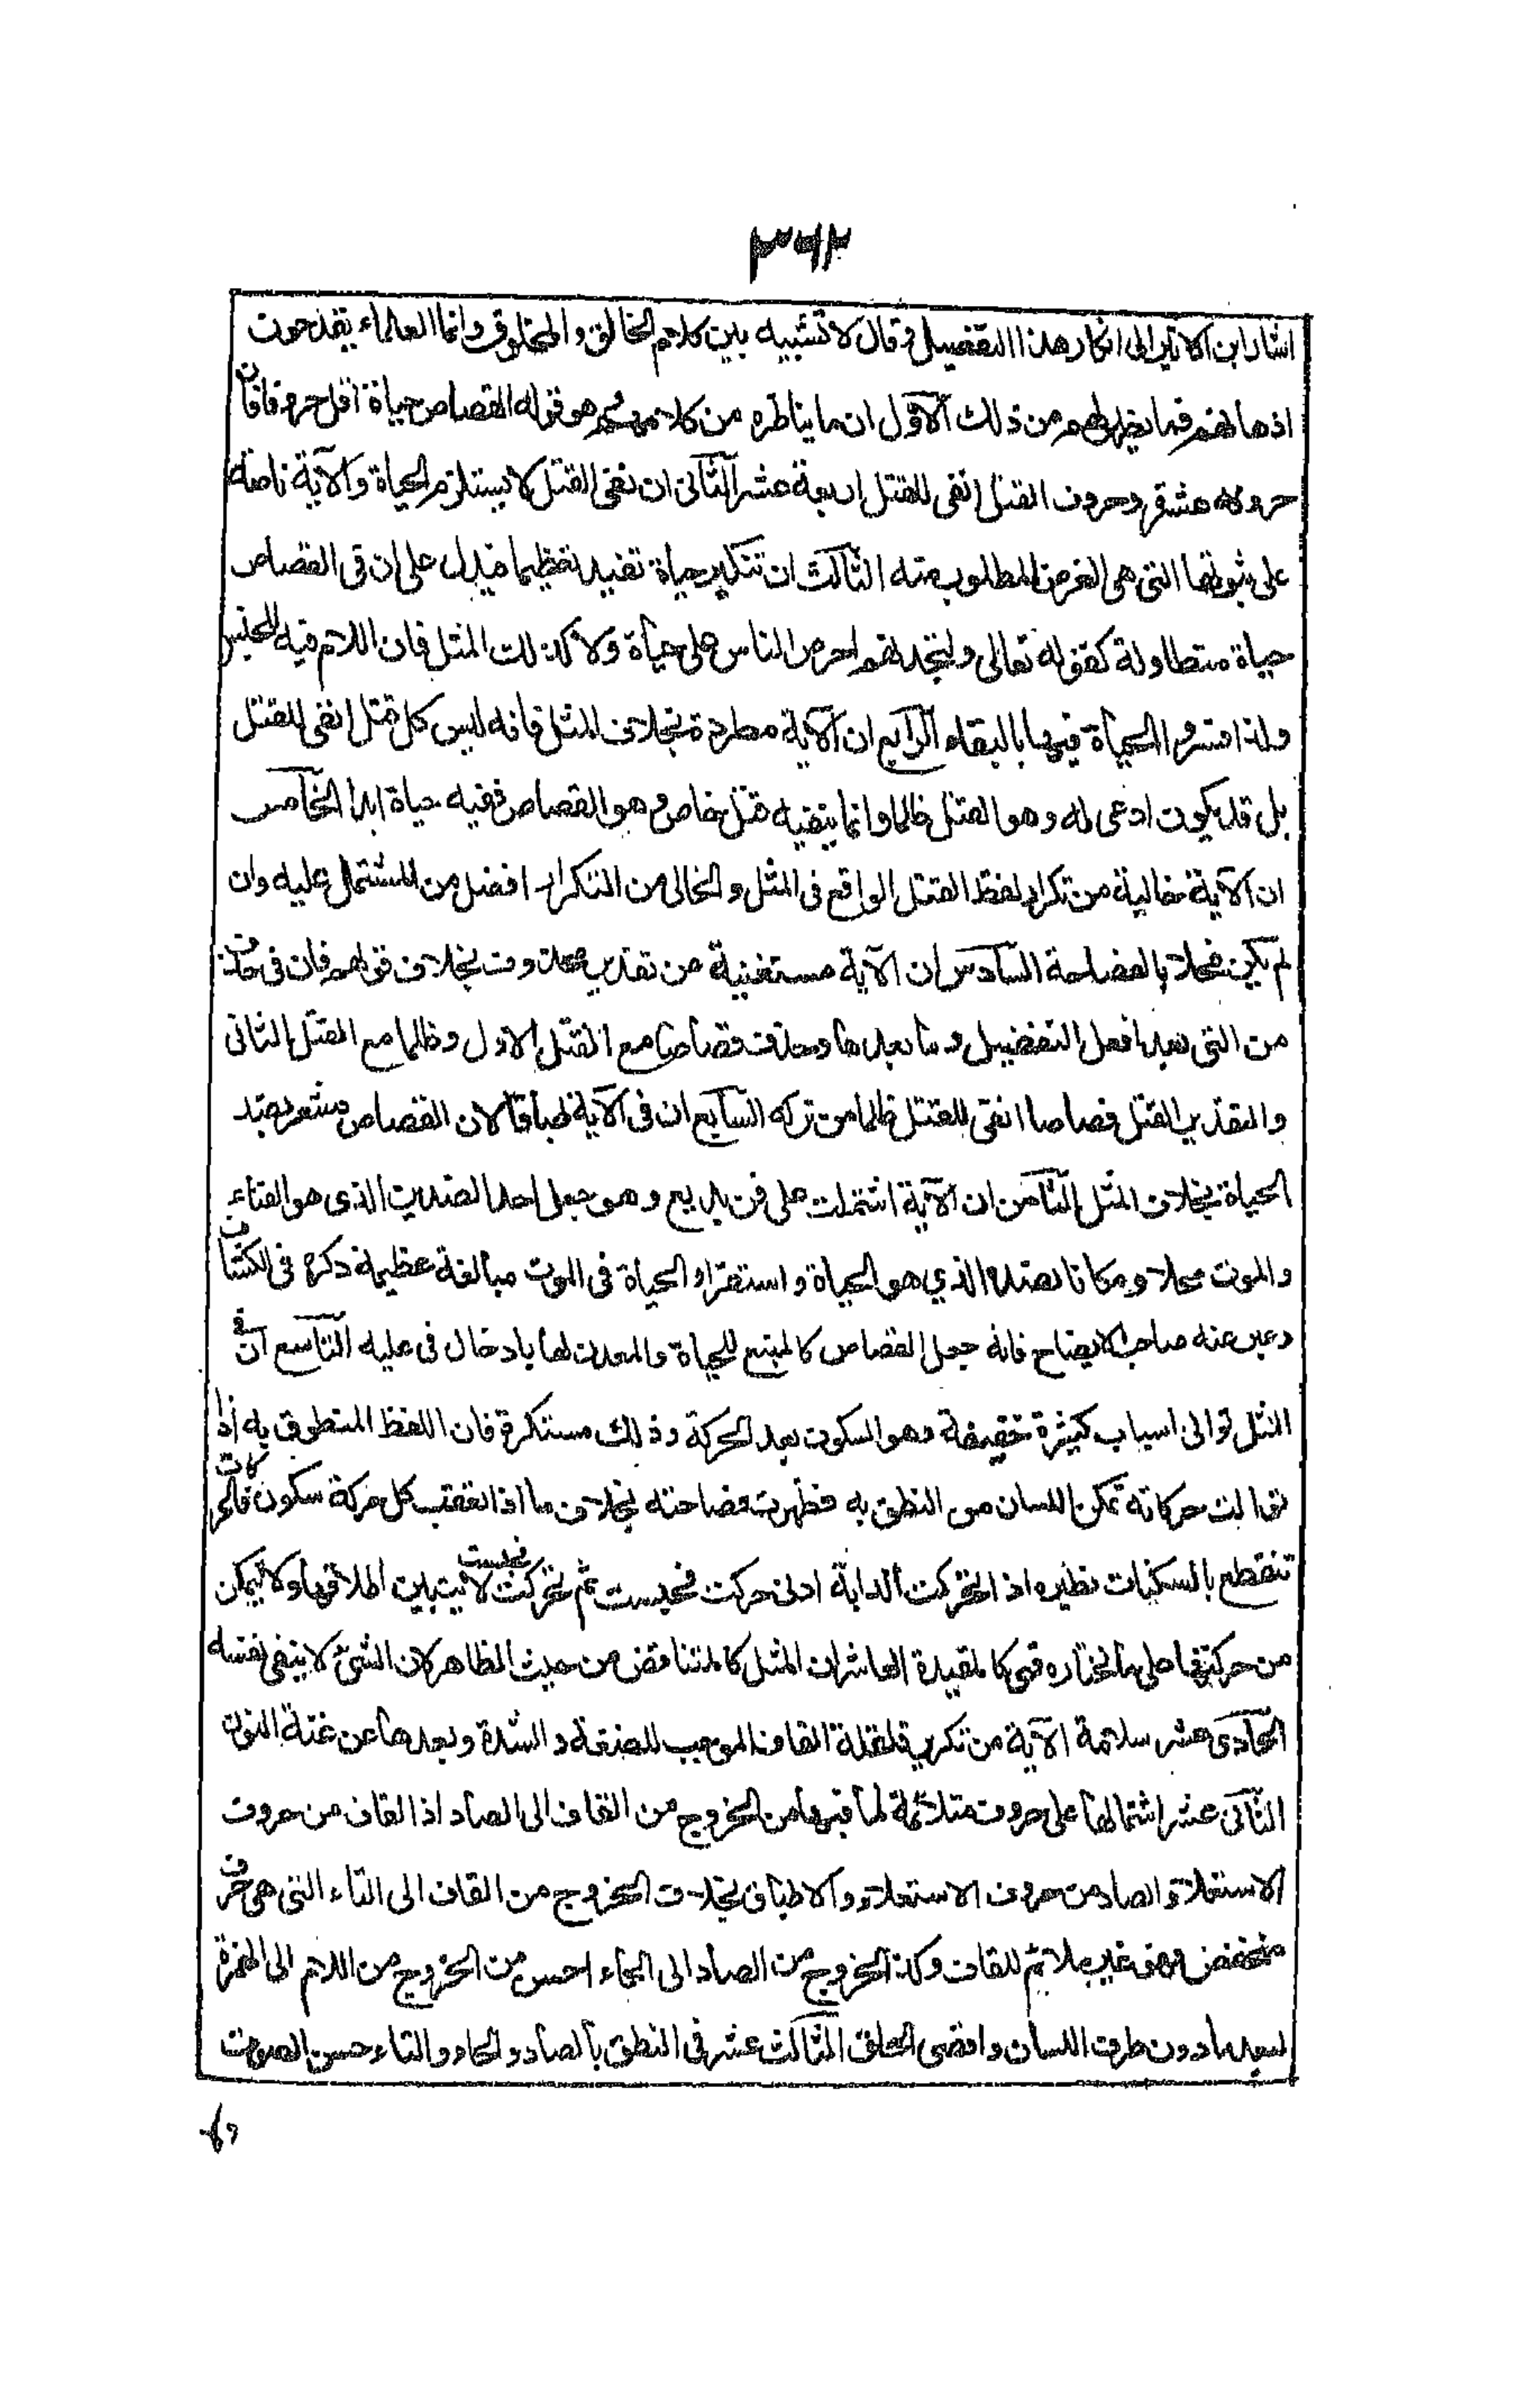 ٣٦٢
اشار ابن الاثير الى انكار هذا التفضيل وقال لا تشبيه بين كلام الخالق والمخلوق وانما العلماء يقدحون
اذهانهم فيما يظهر لهم من ذلك الاول ان ما يناظره من كلامهم هو قوله القصاص حياة اقل حروفا فان
حروفه عشرة وحروف القتل انفى للقتل اربعة عشر الثانى ان نفى القتل لا يستلزم الحياة والآية ناصة
على ثبوتها التى هى الغرض المطلوب منه الثالث ان تنكير حياة تفيد تعظيما فيدل على ان فى القصاص
حياة متطاولة كقوله تعالى ولتجدنهم احرص الناس على حياة ولا كذلك المثل فان اللام فيه للجنس
ولذا فسروا الحياة فيها بالبقاء الرابع ان الآية مطردة بخلاف المثل فانه ليس كل قتل انفى للقتل
بل قد يكون ادعى له وهو القتل ظلما وانما ينفيه قتل خاص وهو القصاص ففيه حياة ابدا الخامس
ان الآية خالية من تكرار لفظ القتل الواقع فى المثل والخالى من التكرار افضل من المشتمل عليه وان
لم يكن مخلا بالفصاحة السادس ان الآية مستغنية عن تقدير محذوف بخلاف قولهم فان فى حذف
من التى بعد افعل التفضيل وما بعدها وحذف قصاصا مع القتل الاول وظلما مع القتل الثانى
والتقدير القتل قصاصا انفى للقتل ظلما من تركه السابع ان فى الآية طباقا لان القصاص مشعر بضد
الحياة بخلاف المثل الثامن ان الآية اشتملت على فن بديع وهو جعل احد الضدين الذى هو الفناء
والموت محلا ومكانا لضده الذي هو الحياة واستقرار الحياة فى الموت مبالغة عظيمة ذكره فى الكشاف
وعبر عنه صاحب الايضاح فانه جعل القصاص كالمنبع للحياة والمعدن لها بادخال فى عليه التاسع ان فى
المثل توالى اسباب كثيرة خفيفة وهو السكون بعد الحركة وذلك مستكره فان اللفظ المنطوق به اذا
توالت حركاته تمكن اللسان من النطق به وظهرت فصاحته بخلاف ما اذا تعقب كل حركة سكون فالحركات
تنقطع بالسكنات نظيره اذا تحركت الدابة ادنى حركت فحبست ثم تحركت فحبست لا يتبين اطلاقها ولا يتمكن
من حركتها على ما تختاره فهى كالمقيدة العاشر ان المثل كالمتناقض من حيث الظاهر لان الشئ لا ينفى نفسه
الحادى عشر سلامة الآية من تكرير قلقلة القاف الموجب للضغطة والشدة وبعدها عن غنة النون
الثانى عشر اشتمالها على حروف متلائمة لما فيها من الخروج من القاف الى الصاد اذ القاف من حروف
الاستعلاء والصاد من حروف الاستعلاء والاطباق بخلاف الخروج من القاف الى التاء التى هى حرف
منخفض فهو غير ملائم للقاف وكذا الخروج من الصاد الى الحاء احسن من الخروج من اللام الى الهمزة
لبعد ما دون طرف اللسان واقصى الحلق الثالث عشر فى النطق بالصاد والحاء والتاء حسن الصوت